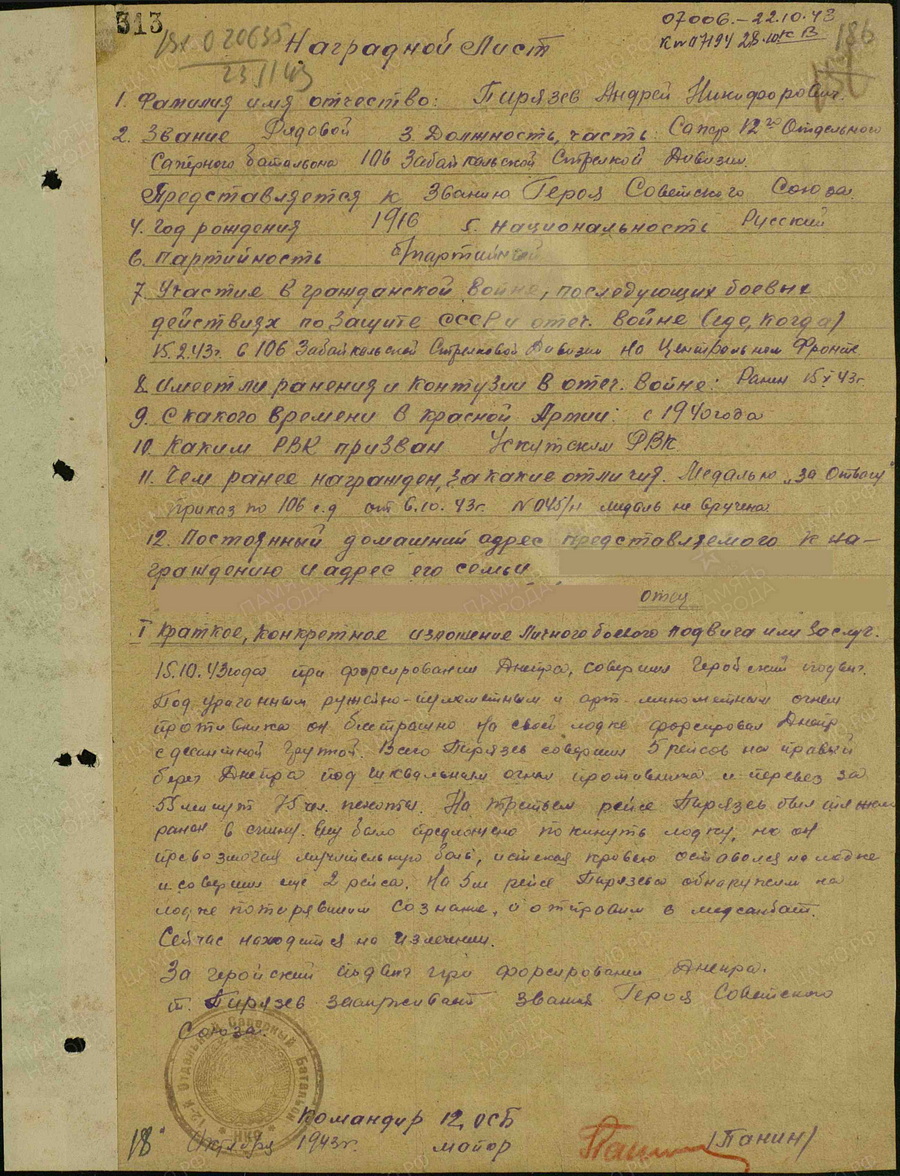 313
07006.-22.10.43
Вх 020635
23.11.43
186
Наградной Лист
1. Фамилия имя отчество: Пирязев Андрей Никифорович.
2. Звание Рядовой 3. Должность, часть: Сапер 12го Отдельного
Саперного батальона 106 Забайкальской Стрелкой Дивизии
Представляется к Званию Героя Советского Союза
4. Год рождения 1916 5. Национальность Русский
6. Партийность б/партийный
7. Участие в гражданской войне, последующих боевых
действиях по защите СССР и отеч. войне (где, когда)
15.2.43г. в 106 Забайкальской Стрелковой Дивизии на Центральном Фронте
8. Имеет ли ранения и контузии в отеч. войне: Ранен 15.X.43г.
9. С какого времени в красной Армии: с 1940 года
10. Каким РВК призван РВК.
11. Чем ранее награжден, за какие отличия. Медалью „За Отвагу"
приказ по 106 с.д от 6.10.43г. N 045/н медаль не вручена
12. Постоянный домашний адрес представляемого к на-
граждению и адрес его семьи
отец
I Краткое, конкретное изложение личного боевого подвига или заслуг.
15.10.43 года при форсировании Днепра, совершил Геройский подвиг.
Под ураганным ружейно-пулеметным и арт-минометным огнем
противника он бесстрашно на своей лодке форсировал Днепр
с десантной группой. Всего Пирязев совершил 5 рейсов на правый
берег Днепра под шквальным огнем противника и перевез за
55 минут 75 чел. пехоты. На третьем рейсе Пирязев был тяжело
ранен в спину. Ему было предложено покинуть лодку, но он
превозмогая мучительную боль, истекая кровью оставался на лодке
и совершил еще 2 рейса. На 5м рейсе Пирязева обнаружили на
лодке потерявшим сознание, и отправили в медсанбат.
Сейчас находится на излечении.
За геройский подвиг при форсировании Днепра.
т. Пирязев заслуживает звания Героя Советского
Союза.
12-й Отдельный Саперный Батальон
НКО
Командир 12 ОСБ
"18" Октября 1943г. майор /Панин/